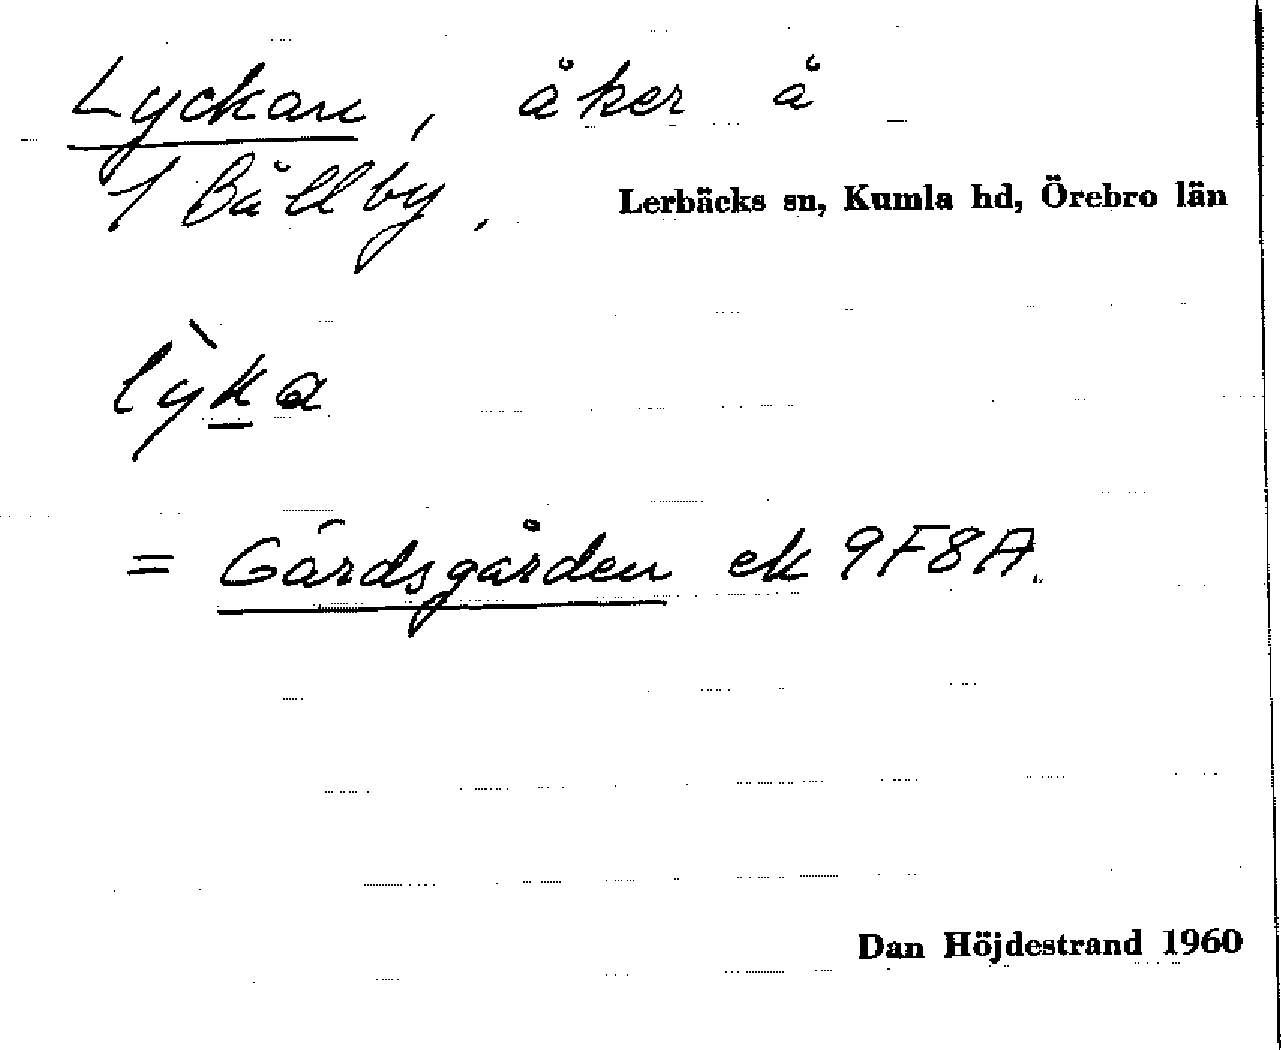 Lyckan, åker å
1 Bållby,
Lerbäcks sn, Kumla hd, Örebro län
lỳka
= Gårdsgården ek 9F8A.
Dan Höjdestrand 1960